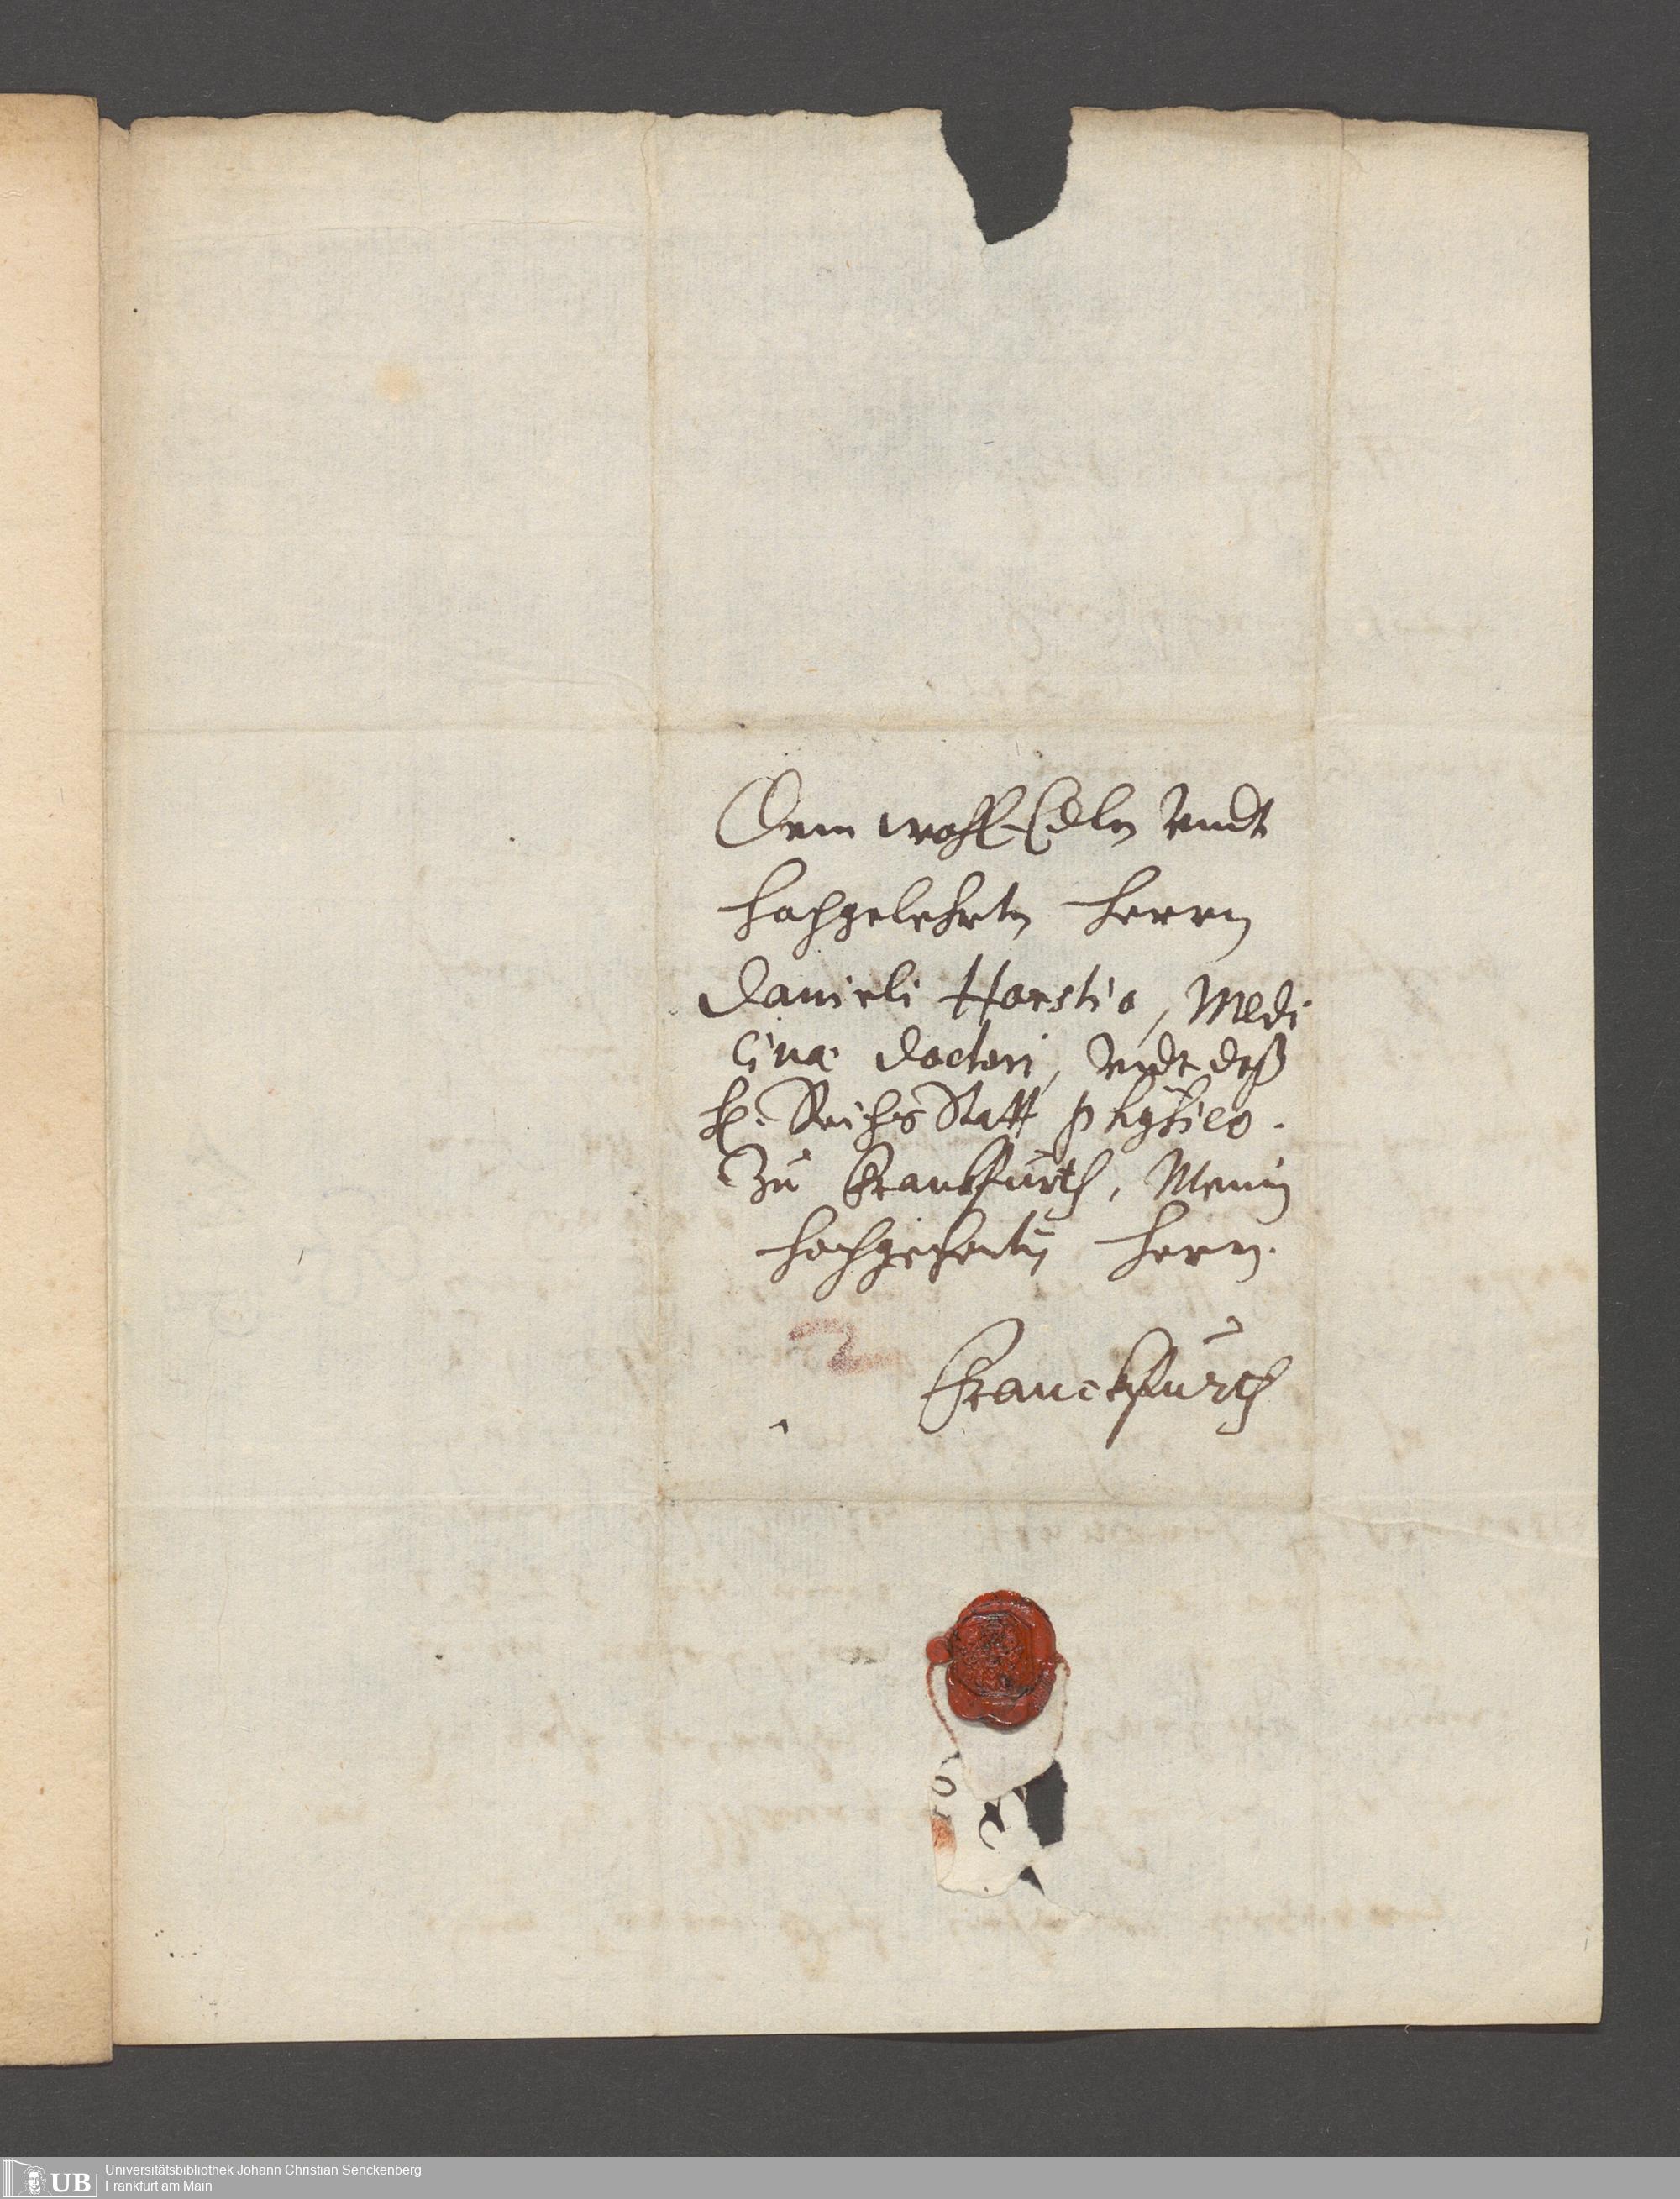 Dem wohl-Edln vndt
hochgelehrtn Herrn
Danieli Horstio, Medi
cinæ doctori, vndt deß
H. Reichs Statt physico.
Zu Franckfurth, Meinin
hochgeehrtn Herrn.
Franckfurth
UB
Universitätsbibliothek Johann Christian Senckenberg
Frankfurt am Main